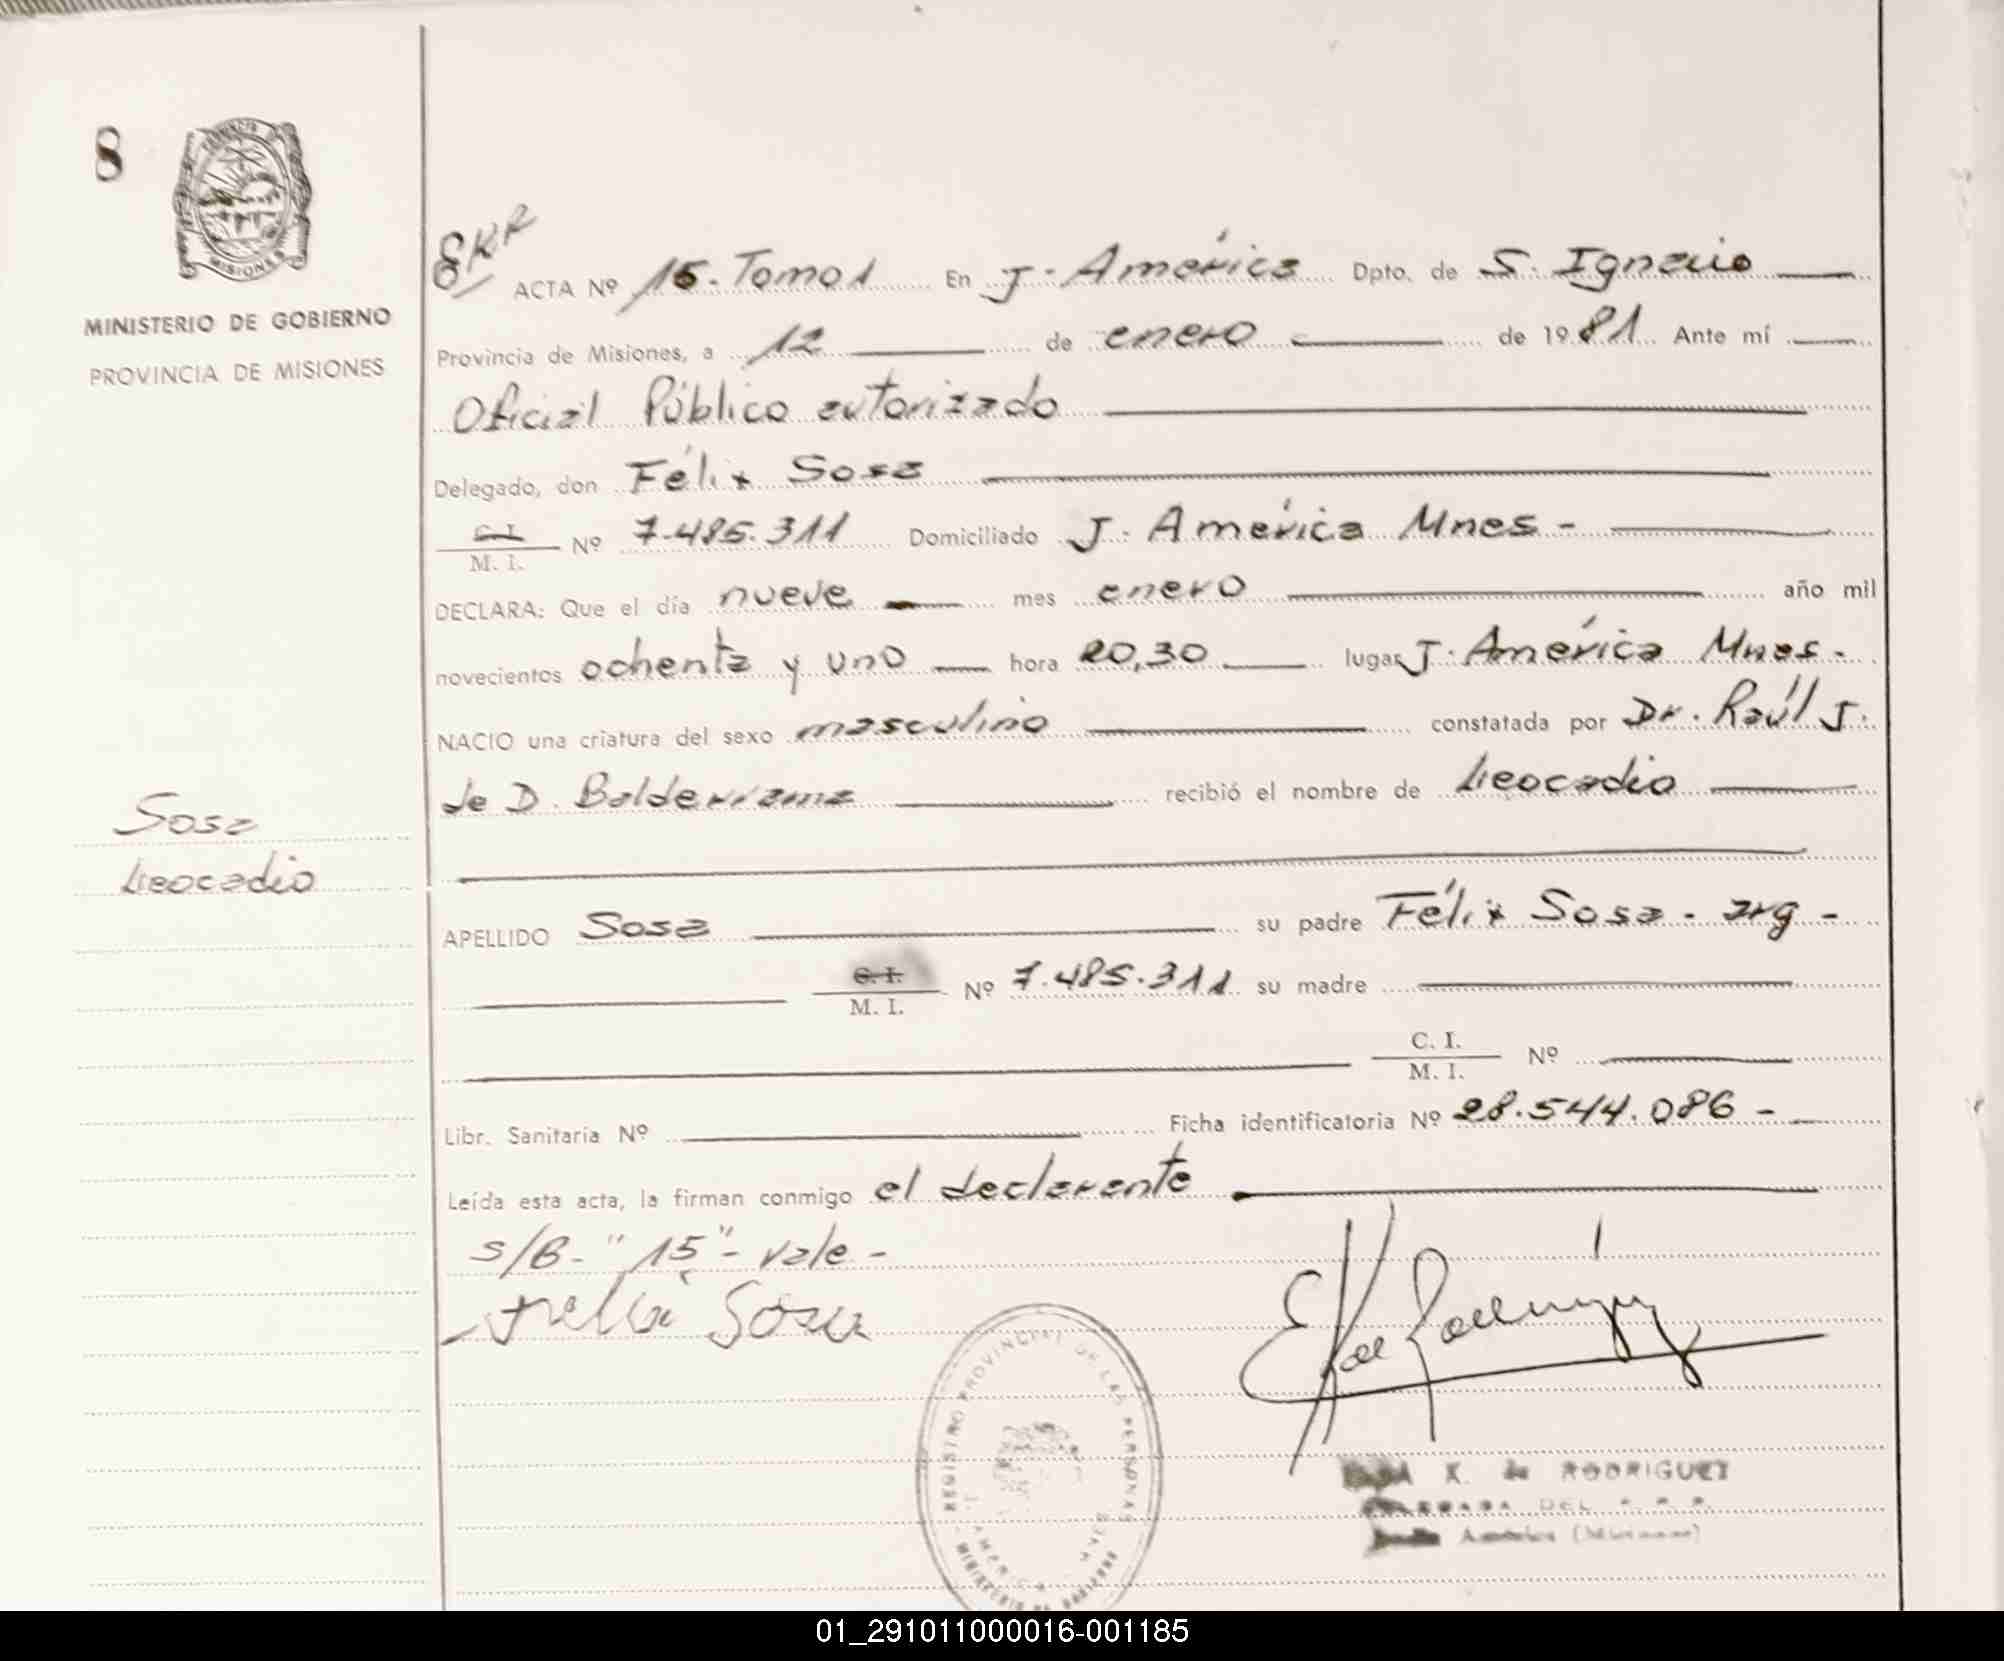 8
MISIONES
MINISTERIO DE GOBIERNO
PROVINCIA DE MISIONES
Sosa
Leocadio
EKR
ACTA Nº 15. Tomo 1 En J. América Dpto. de S. Ignacio
Provincia de Misiones, a 12 de enero de 1981 Ante mí
Oficial Público autorizado
Delegado, don Félix Sosa
C. I.
M. I. Nº 7.485.311 Domiciliado J. América Mnes -
DECLARA: Que el día nueve mes enero año mil
novecientos ochenta y uno hora 20,30 lugar J. América Mnes -
NACIO una criatura del sexo masculino constatada por Dr. Raúl J.
de D. Balderrama recibió el nombre de Leocadio
APELLIDO Sosa su padre Félix Sosa - arg -
C. I.
M. I. Nº 7.485.311 su madre
C. I.
M. I. Nº
Libr. Sanitaria Nº Ficha identificatoria Nº 28.544.086 -
Leída esta acta, la firman conmigo el declarante
s/B - "15" - vale -
Felix Sosa
REGISTRO PROVINCIAL DE LAS PERSONAS
K. de RODRIGUEZ
DELEGADA DEL R. P. P.
América (Misiones)
01_291011000016-001185